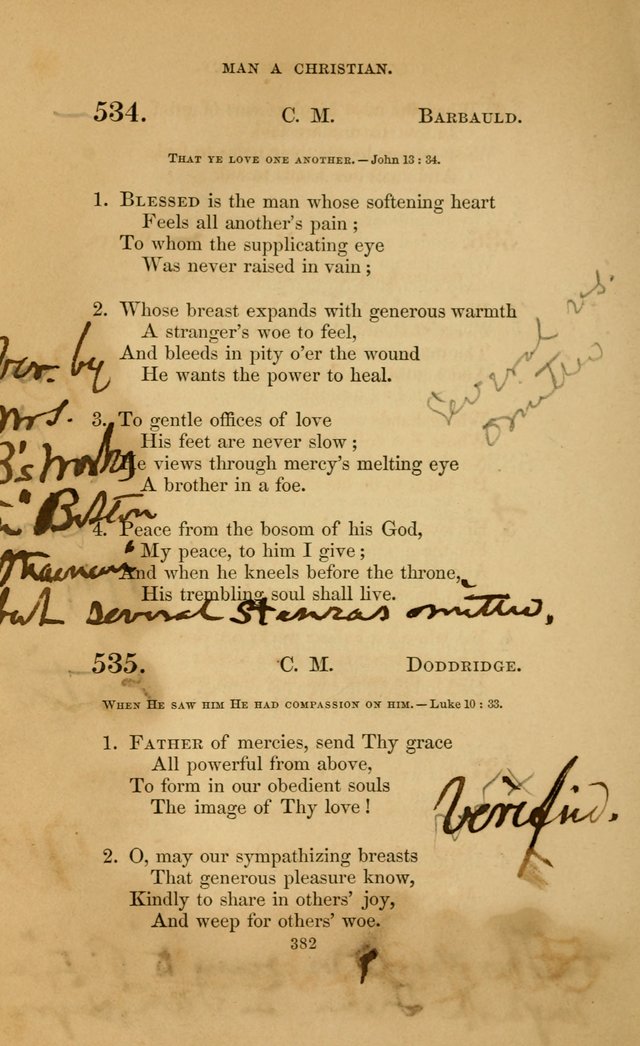 MAN A CHRISTIAN.
534. C. M. BARBAULD.
THAT YE LOVE ONE ANOTHER. — John 13 : 34.
1. BLESSED is the man whose softening heart
Feels all another's pain ;
To whom the supplicating eye
Was never raised in vain ;
2. Whose breast expands with generous warmth
A stranger's woe to feel,
And bleeds in pity o'er the wound
He wants the power to heal.
Several vs.
omitted
Ver. by
Mrs.
B's Works
Boston
3. To gentle offices of love
His feet are never slow ;
He views through mercy's melting eye
A brother in a foe.
4. Peace from the bosom of his God,
My peace, to him I give ;
And when he kneels before the throne,
His trembling soul shall live.
but several stanzas omitted,
535. C. M. DODDRIDGE.
WHEN HE SAW HIM HE HAD COMPASSION ON HIM. — Luke 10 : 33.
1. FATHER of mercies, send Thy grace
All powerful from above,
To form in our obedient souls
The image of Thy love !
Verified.
2. O, may our sympathizing breasts
That generous pleasure know,
Kindly to share in others' joy,
And weep for others' woe.
382